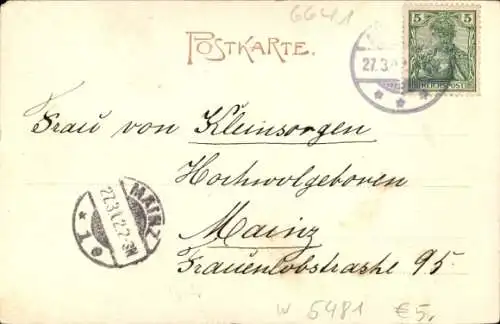 6641
POSTKARTE.
5
REICHSPOST
27.3.
Frau von Kleinsorgen
Hochwolgeboren
Mainz
Frauenlobstrashe 95.
MAINZ
27.3.02.2-3N
* 1 *
W 5481 €5,